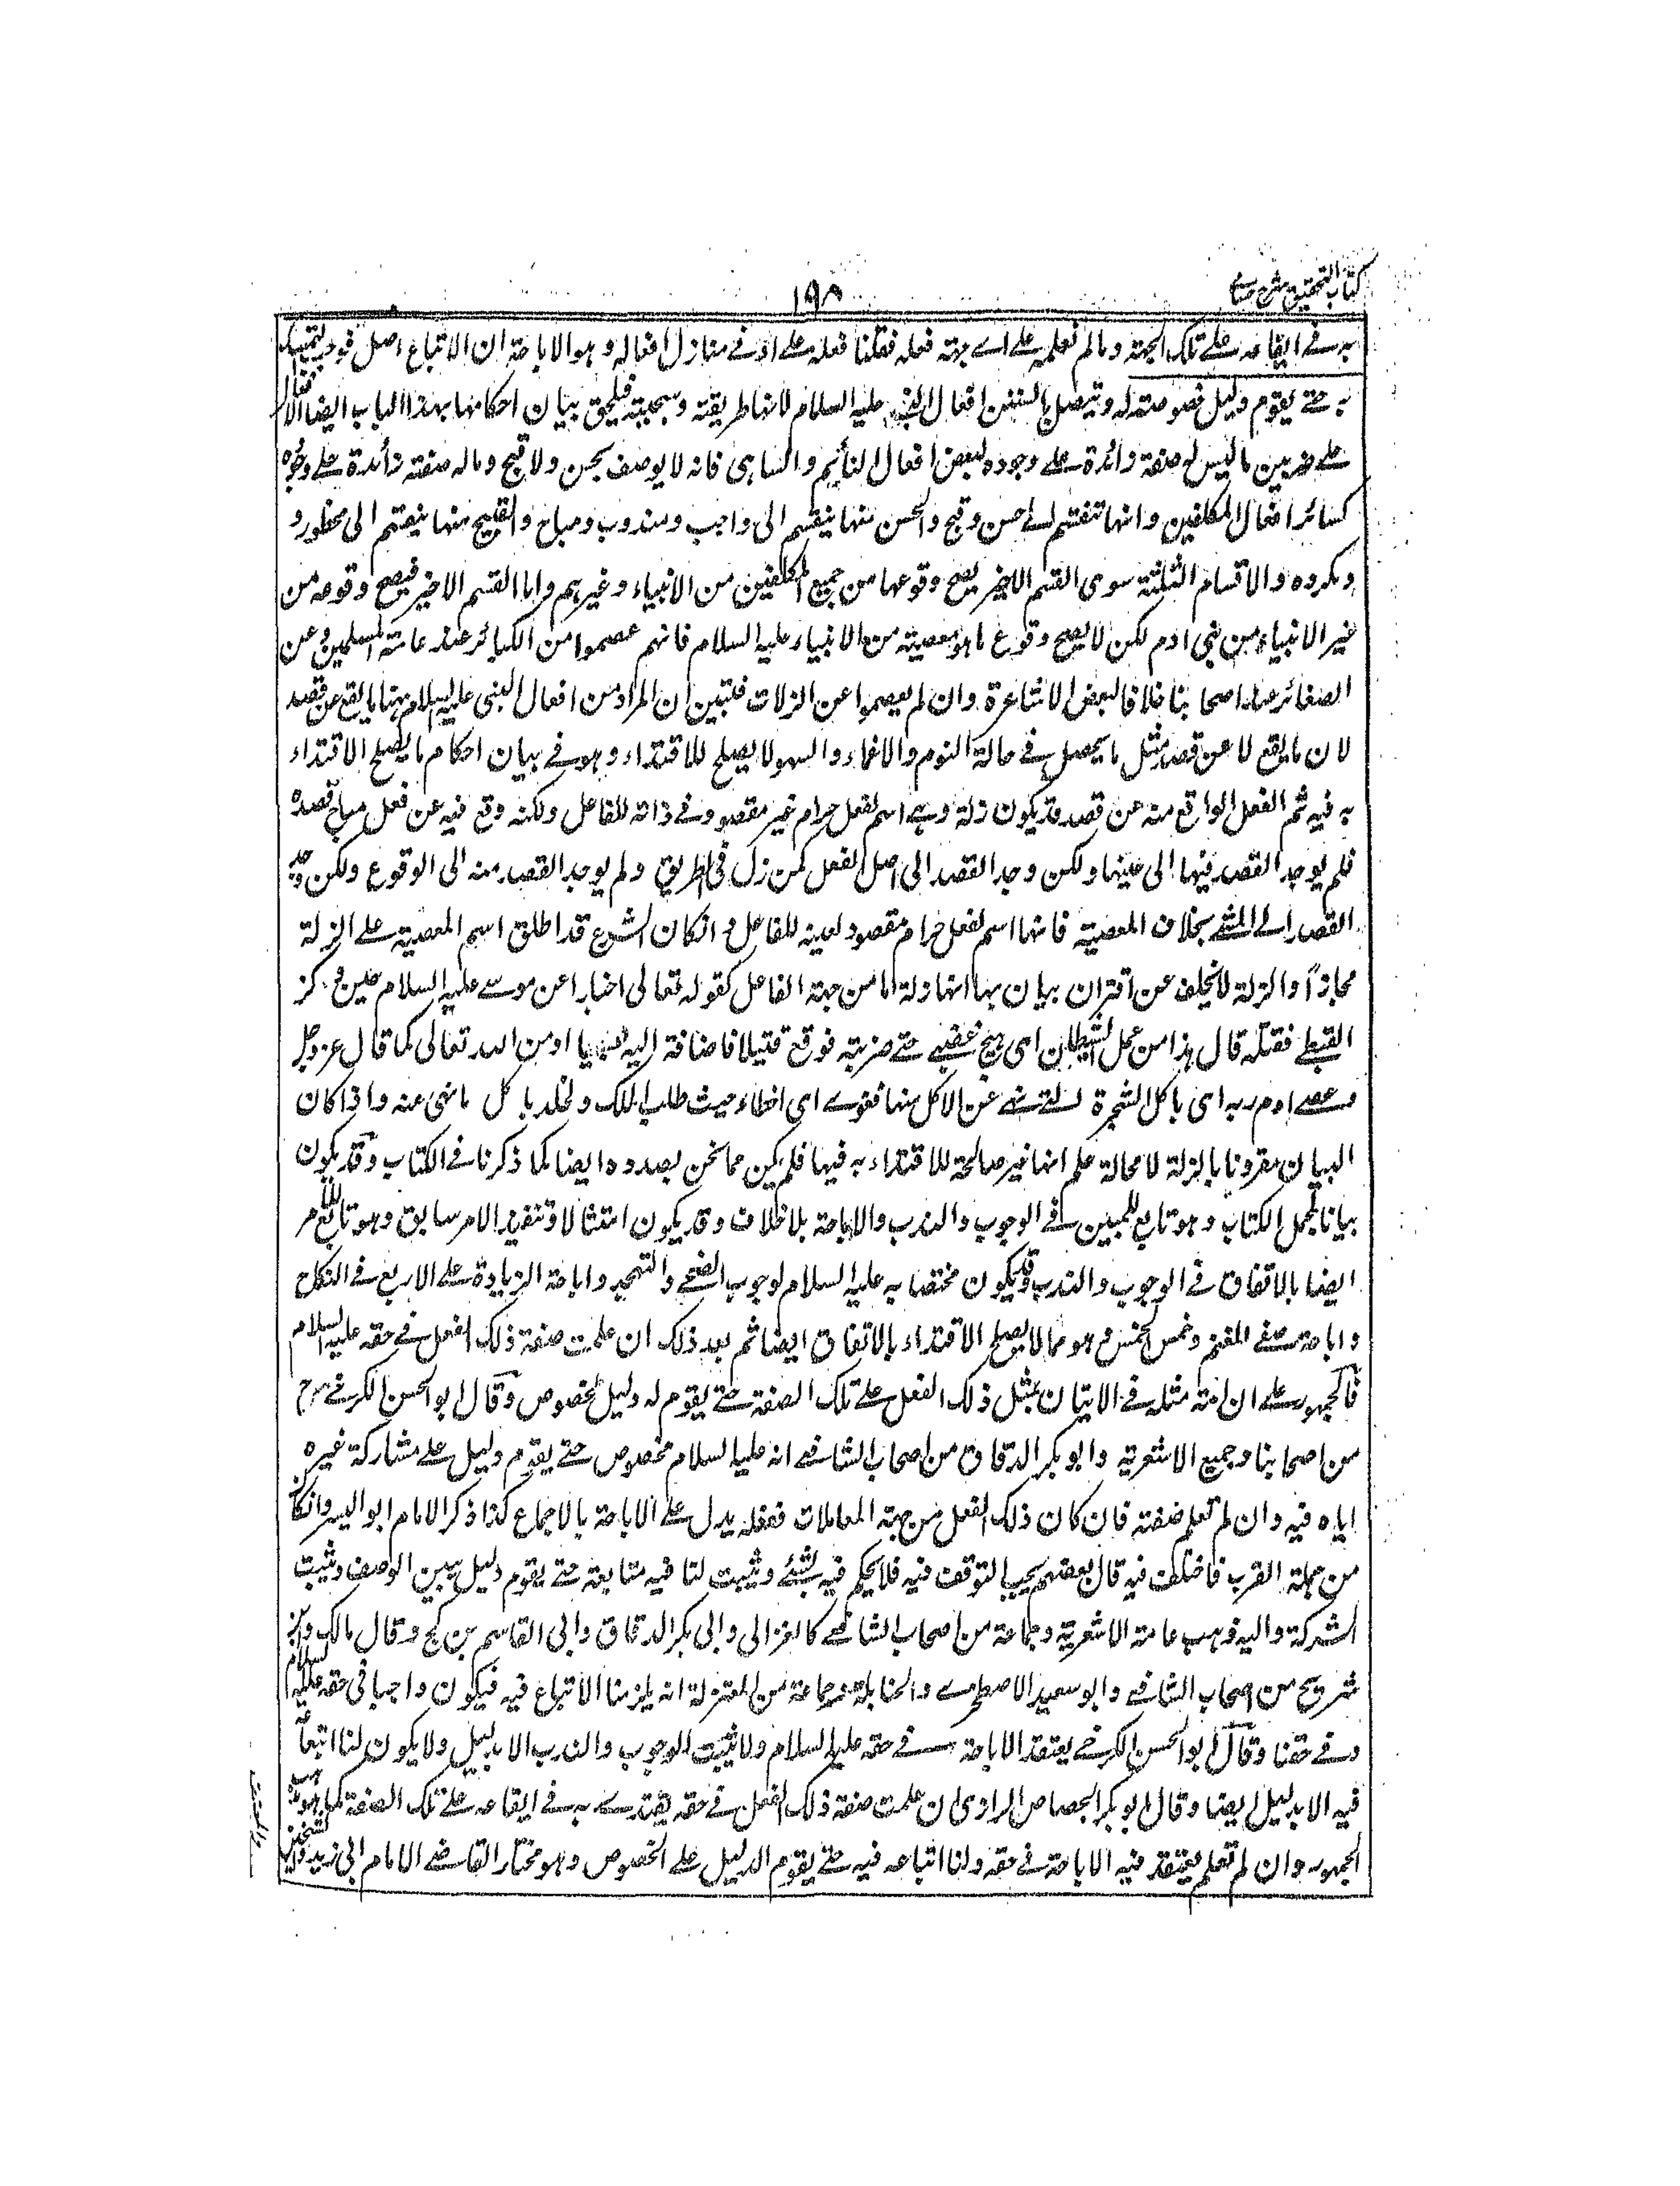 كتاب التحقيق شرح حسامي
١٩٨
به في ايقاعه على تلك الجهة وما لم نعلمه على اي جهة فعله فقلنا فعله على ادنى منازل افعاله وهو الاباحة ان الاتباع اصل فوجب التمسك
به حتى يقوم دليل خصوصه له ويتصل بالسنن افعال النبي عليه السلام لانها طريقته وسجيته فيلحق بيان احكامها بهذا الباب ايضا الافعال
على ضربين ما ليس له صفة زائدة على وجوده لبعض افعال النائم والساهي فانه لا يوصف بحسن ولا قبح وما له صفة زائدة على وجوده
كسائر افعال المكلفين وانها تنقسم الى حسن وقبح والحسن منها ينقسم الى واجب ومندوب ومباح والقبيح منها ينقسم الى محظور و
ومكروه والاقسام الثلثة سوى القسم الاخير يصح وقوعها من جميع المكلفين من الانبياء وغيرهم واما القسم الاخير فيصح وقوعه من
غير الانبياء من بني ادم لكن لا يصح وقوع ما هو معصية من الانبياء عليه السلام فانهم عصموا من الكبائر عند عامة المسلمين وعن
الصغائر عند اصحابنا خلافا لبعض الاشاعرة وان لم يعصموا عن الزلات فتبين ان المراد من افعال النبي عليه السلام ههنا ما يقع عن قصد
لان ما يقع لا عن قصد مثل ما يحصل في حالة النوم والاغماء والسهو لا يصلح للاقتداء وهو في بيان احكام ما يصلح الاقتداء
به فيه ثم الفعل الواقع منه عن قصد قد يكون زلة وهي اسم لفعل حرام غير مقصود في ذاته للفاعل ولكنه وقع فيه عن فعل مباح قصده
فلم يوجد القصد فيها الى عينها ولكن وجد القصد الى اصل الفعل كمن زل في الطريق ولم يوجد القصد منه الى الوقوع ولكن وجد
القصد الى المشي بخلاف المعصية فانها اسم لفعل حرام مقصود لعينه للفاعل وان كان الشرع قد اطلق اسم المعصية على الزلة
مجازاً والزلة لا تخلف عن اقتران بيان بها انها زلة اما من جهة الفاعل كقوله تعالى اخبارا عن موسى عليه السلام حين وكز
القبطي فقتله قال هذا من عمل الشيطان اي هيج غضبي حتى ضربته فوقع قتيلا فاضافة اليه تسببا او من الله تعالى كما قال عز وجل
وعصى ادم ربه اي باكل الشجرة التي نهي عن الاكل منها فغوى اي اخطاء حيث طلب الملك والخلد باكل ما نهى عنه واذا كان
البيان مقرونا بالزلة لا محالة علم انها غير صالحة للاقتداء به فيها فلم يكن مما نحن بصدده ايضا كما ذكرنا في الكتاب وقد يكون
بيانا لمجمل الكتاب وهو تابع للمبين في الوجوب والندب والاباحة بلا خلاف وقد يكون امتثالا وتنفيذ الامر سابق وهو تابع للامر
ايضا بالاتفاق في الوجوب والندب وقد يكون مختصا به عليه السلام لوجوب الضحى والتهجد واباحة الزيادة على الاربع في النكاح
واباحة صفي المغنم وخمس الخمس وهو مما لا يصلح الاقتداء بالاتفاق ايضا ثم بعد ذلك ان علمت صفة ذلك الفعل في حقه عليه السلام
فالجمهور على ان امته مثله في الاتيان بمثل ذلك الفعل على تلك الصفة حتى يقوم له دليل الخصوص وقال ابو الحسن الكرخي رح
من اصحابنا وجميع الاشعرية وابو بكر الدقاق من اصحاب الشافعي انه عليه السلام مخصوص حتى يقوم دليل على مشاركة غيره
اياه فيه وان لم تعلم صفته فان كان ذلك الفعل من جهة المعاملات ففعله يدل على الاباحة بالاجماع كذا ذكر الامام ابو اليسر وان كان
من جملة القرب فاختلف فيه قال بعضهم يجب التوقف فيه فلا يحكم فيه بشئ ويثبت لنا فيه متابعة حتى يقوم دليل يبين الوصف ويثبت
الشركة واليه ذهب عامة الاشعرية وجماعة من اصحاب الشافعي كالغزالي وابي بكر الدقاق وابي القاسم بن كج وقال مالك وابن
شريح من اصحاب الشافعي وابو سعيد الاصطخري والحنابلة وجماعة من المعتزلة انه يلزمنا الاتباع فيه فيكون واجبا في حقه عليه السلام
وفي حقنا وقال ابو الحسن الكرخي يعتقد الاباحة في حقه عليه السلام ولا يثبت الوجوب والندب الا بدليل ولا يكون لنا اتباعه
فيه الا بدليل ايضا وقال ابو بكر الجصاص الرازي ان علمت صفة ذلك الفعل في حقه يقتدى به في ايقاعه على تلك الصفة كما هو مذهب
الجمهور وان لم تعلم يعتقد فيه الاباحة في حقه ولنا اتباعه فيه حتى يقوم الدليل على الخصوص وهو مختار القاضي الامام ابي زيد والشيخين